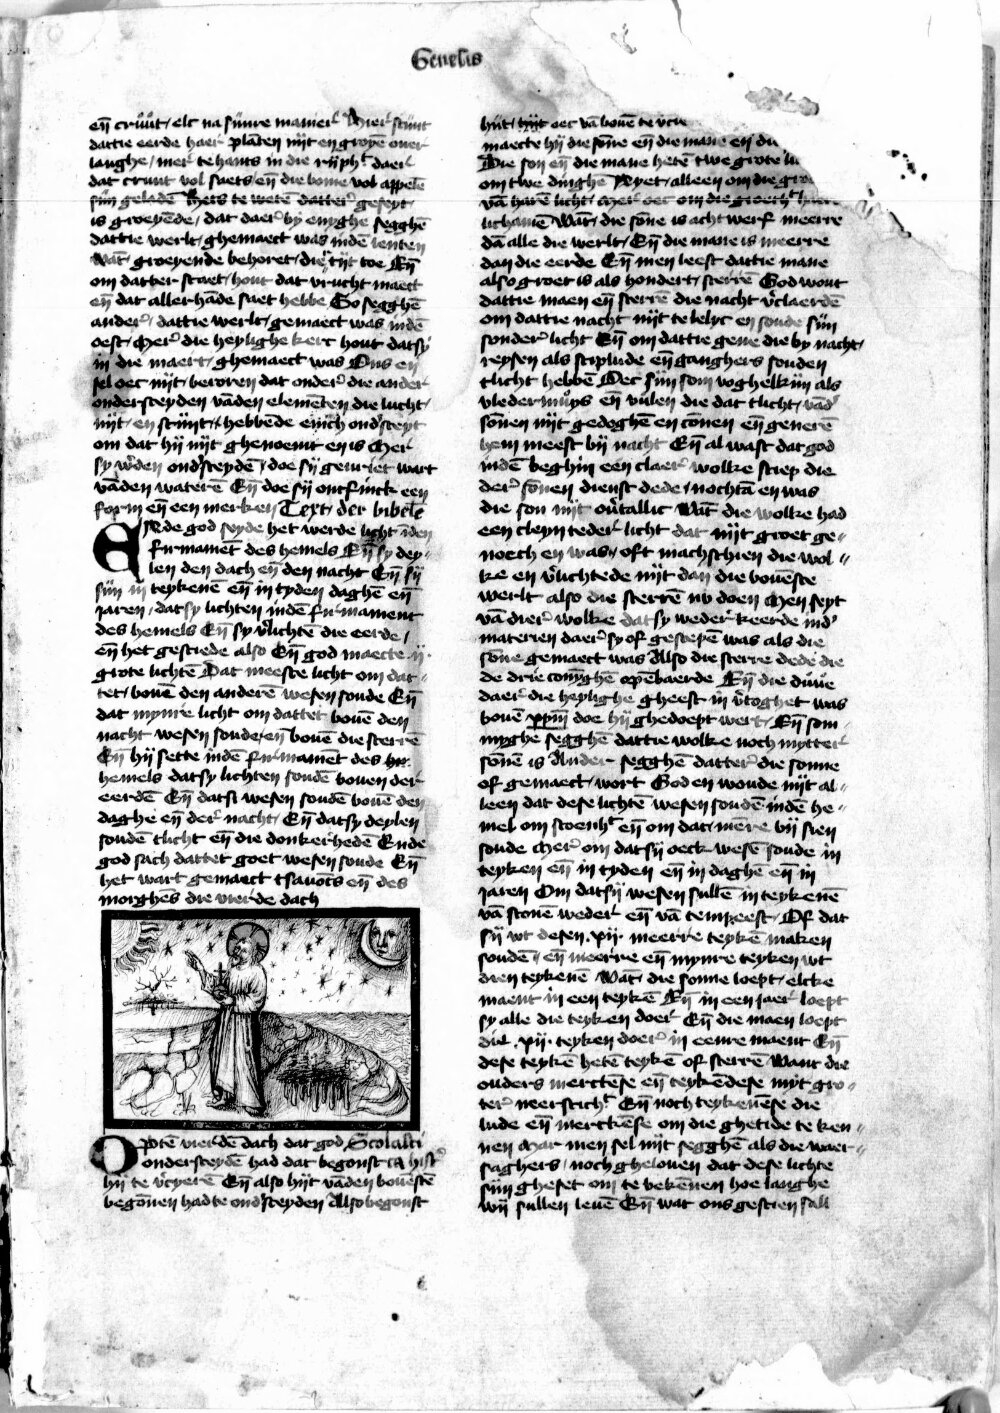 Genesis
eñ cruut / elc na sinre manier̄ Hier̄ stint
dattie eerde haer plāten nijt en groyē over
langhe / mer̄ te hants in die rijph̄t daer̄
dat cruut vol saets / eñ die bome vol appelē
sijn geladē Hets te wetē datter geseyt
is groeyēde / dat daer̄ by enyghe segghē
dattie werlt / ghemaect was indē lenten
wāt groeyende behoret / die tijt toe Eñ
om datter staet / hout dat vrucht maect
eñ dat allerhāde saet hebbe So segghē
ander̄ / dattie werlt / gemaect was indē
oest / Mer̄ die heylighe kerc hout datsy
in die maert / ghemaect was Ons en
sel oec nijt / beroren dat onder̄ die ander
ondersceyden vāden elemēten die lucht /
nijt / en stint / hebbēde enich ond'sceyt
om dat hij nijt ghenoemt en is Mer
sy w'den ond'sceydē / doe sy geuriet wart
vāden waterē Eñ doe sy ontfinck een
form eñ een merken / Text / der bibelē
Ende god seyde het werde licht indē
firmamēt des hemels Eñ sy dey-
len den dach eñ den nacht Eñ sij
sijn in teykenē eñ in tyden daghē eñ
jaren / datsy lichten indē firmament
des hemels Eñ sy v'lichtē die eerde /
eñ het gesciede also Eñ god maecte ij.
grote lichtē Dat meeste licht om dat-
tet / bouē den anderē wesen soude Eñ
dat mynre licht om dattet bouē den
nacht wesen soude / eñ bouē die sterrē
Eñ hij sette indē firmamēt des he.
hemels datsy lichten soudē bouen der
eerdē Eñ datsi wesen soudē bouē den
daghe eñ der̄ nacht / Eñ datsy deylen
soudē tlicht eñ die donkerhedē Ende
god sach dattet goet wesen soude Eñ
het wart gemaect tsauōts eñ des
morghēs die vierde dach
Optē vierdē dach dat god Scolasti
ondersceydē had dat begonst ca hist̄
hij te v'cyerē Eñ also hijt vāden bouestē
begōnen hadte ond'sceyden Also begonst
hijt / tijt oec vā bouē te vcie
maecte hij die sōne eñ die mane eñ die
Die son eñ die mane hetē twe grote li
om twe dinghē Nyet / alleen om die gro
vā harē licht / Mer̄ oec om die groeth̄t haer̄
lichamē Wāt / die sōne is acht werf meerre
dā alle die werlt / Eñ die mane is meerre
dan die eerde Eñ men leest dattie mane
also groet is als hondert / sterrē God wout
dattie maen eñ sterrē die nacht v'claerdē
om dattie nacht nijt te lelyc en soude sijn
sonder̄ licht Eñ om dattie gene die by nacht /
reysen als sciplude eñ ganghers souden
tlicht hebbē Oec sijn som voghelkijn als
vledermuys eñ vulen die dat tlicht / vād'
sōnen nijt gedoghē en cōnen eñ generē
hem meest bij nacht Eñ al wast dat god
indē beghin een claer̄ wolke sciep die
der̄ sōnen dienst dede / nochtā en was
die son nijt ou'tallic Wāt die wolke had
een cleyn teder̄ licht dat nijt groet ge-
noech en was / oft machschien die wol-
ke en v'lichtede nijt dan die bouēste
werlt also die sterrē nv doen Men seyt
vā dier̄ wolke datsy weder̄ keerde ind'
materien daer̄ sy of gescepē was als die
sōne gemaect was Also die sterre dede die
de drie coningē opēbaerde Eñ die duue
daer̄ die heylighe gheest in v'toghet was
bouē xp̄m doe hij ghedoept wert / Eñ som-
myghe segghē dattie wolke noch mytter̄
sōnē is Ander̄ segghē datter̄ die sonne
of gemaect / wort God en woude nijt al-
leen dat dese lichtē wesen soudē indē he-
mel om scoenh̄t eñ om dat / mēre bij sien
soude Mer̄ om datsij oeck wesē soude in
teyken eñ in tyden eñ in daghē eñ in
jaren Om datsij wesen sullē in teykenē
vā scōnē weder̄ eñ vā tempeest / Of dat
sij wt desen .xij. meerre teykē maken
soudē / eñ meerre eñ mynre teyken wt
dien teykenē Wāt die sonne loept / elcke
maent in een teykē Eñ in een jaer̄ loept
sy alle die teyken doer̄ Eñ die maen loept
die .xij. teyken doer̄ in eenre maent Eñ
dese teykē hetē teykē of sterrē Want die
ouders merctēse eñ teykēdese myt gro-
ter̄ neersticht̄ Eñ noch teykenēse die
lude eñ merckēse om die ghetide te ken-
nen Mar men sel nijt segghē als die waer-
saghers / noch ghelouen dat dese lichte
sijn gheset om te bekēnen hoe langhe
wij sullen leuē Eñ wat ons gescien sall